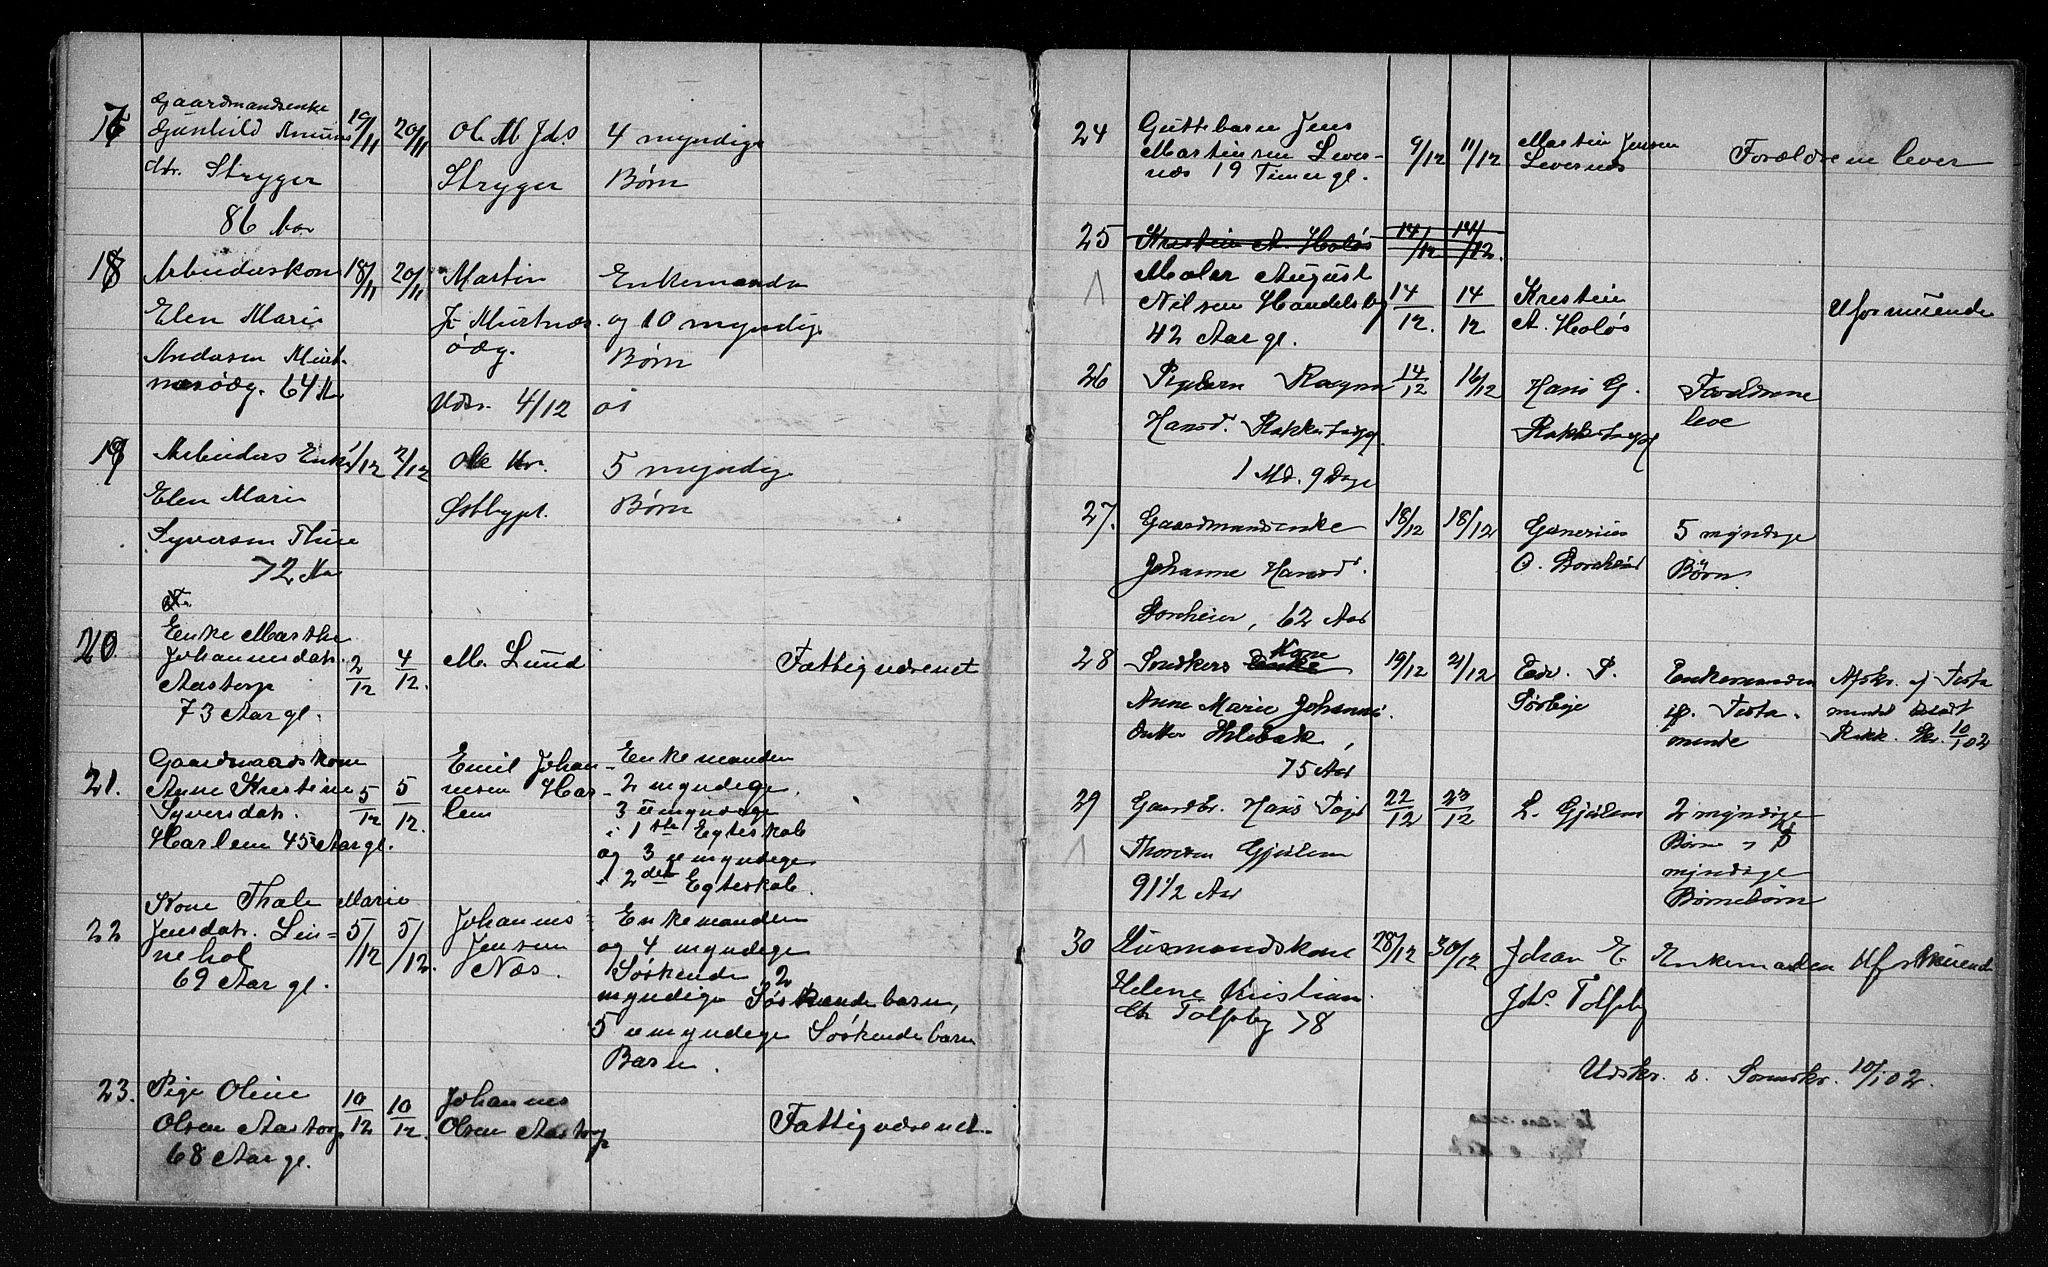 17 Gaardmandsenke
Gunhild Amuns 19/11 20/11 Ole M Jds 4 myndige
dtr. Stryger Stryger Børn
86 Aar
18 Arbeiderskone 18/11 20/11 Martin Enkemanden
Elen Marie J. og 10 myndige
Andersen ødg. Børn
64 Aar
Udsr. 4/12 01
19 Arbeiders Enke 1/12 2/12 Ole Kr. 5 myndige
Elen Marie Østbygt. Børn
Syversen Thue
72 Aar
20 Enke Marthe
Johannesdatr. 2/12 4/12. M. Lund Fattigvæsenet
Aastorp
73 Aar gl.
21. Gaardmandskone Emil Johan- Enkemanden
Anne Kristine 5/12 5/12. nesen Har- 2 myndige,
Syversdatr. lem 3 umyndige
Harlem 45 Aar gl. i 1ste Egteskab
og 3 umyndige
i 2det Egteskab.
22 Kone Thale Marie Johannes Enkemanden
Jensdatr. Lin- 5/12 5/12. Jensen og 4 myndige
nehol Næs. Søskende 2
69 Aar gl. myndige Søskendebarn,
5 umyndige Søskendebarn
Barn.
23. Pige Oline 10/12 10/12. Johannes
Olsen Aastorp Olsen Aastorp Fattigvæsenet.
68 Aar gl.
24 Guttebarn Jens Martin Jensen
Martinsen Lever- 9/12 11/12 Levernes Forældrene lever
næs 19 Timer gl.
25 Kristian A. Holøs 14/12 14/12.
Maler August
Nilsen Handelsby 14/12. 14/12 Kristian Uformuende
42 Aar gl. A. Holøs
26 Pigebarn Ragna 14/12 16/12 Hans G. Forældrene
Hansd. Rakkestagpl. Rakkestagpl leve
1 Md. 9 Dage
27. Gaardmandsenke 18/12 18/12 Generius 5 myndige
Johanne Hansd. O. Børn
62 Aar
28 Snedkers Enke Kone 19/12 21/12 Edv. P. Enkemanden Afskr. af Testa
Anne Marie Johannes Sørbye if. Testa- mentet
datter mente Rakk. Skr. 10/1 02
75 Aar
29 Gaardbr. Hans 22/12 23/12 L. Gjølem 2 myndige
Thoresen Gjølem Børn
91 1/2 Aar myndige
Børnebørn
30 Husmandskone 28/12 30/12 Johan E Enkemanden Uformuende
Helene Kristian. Jds. Tolfsby
dtr Tolfsby 78
Udskr. s. Sorenskr. 10/1 02.